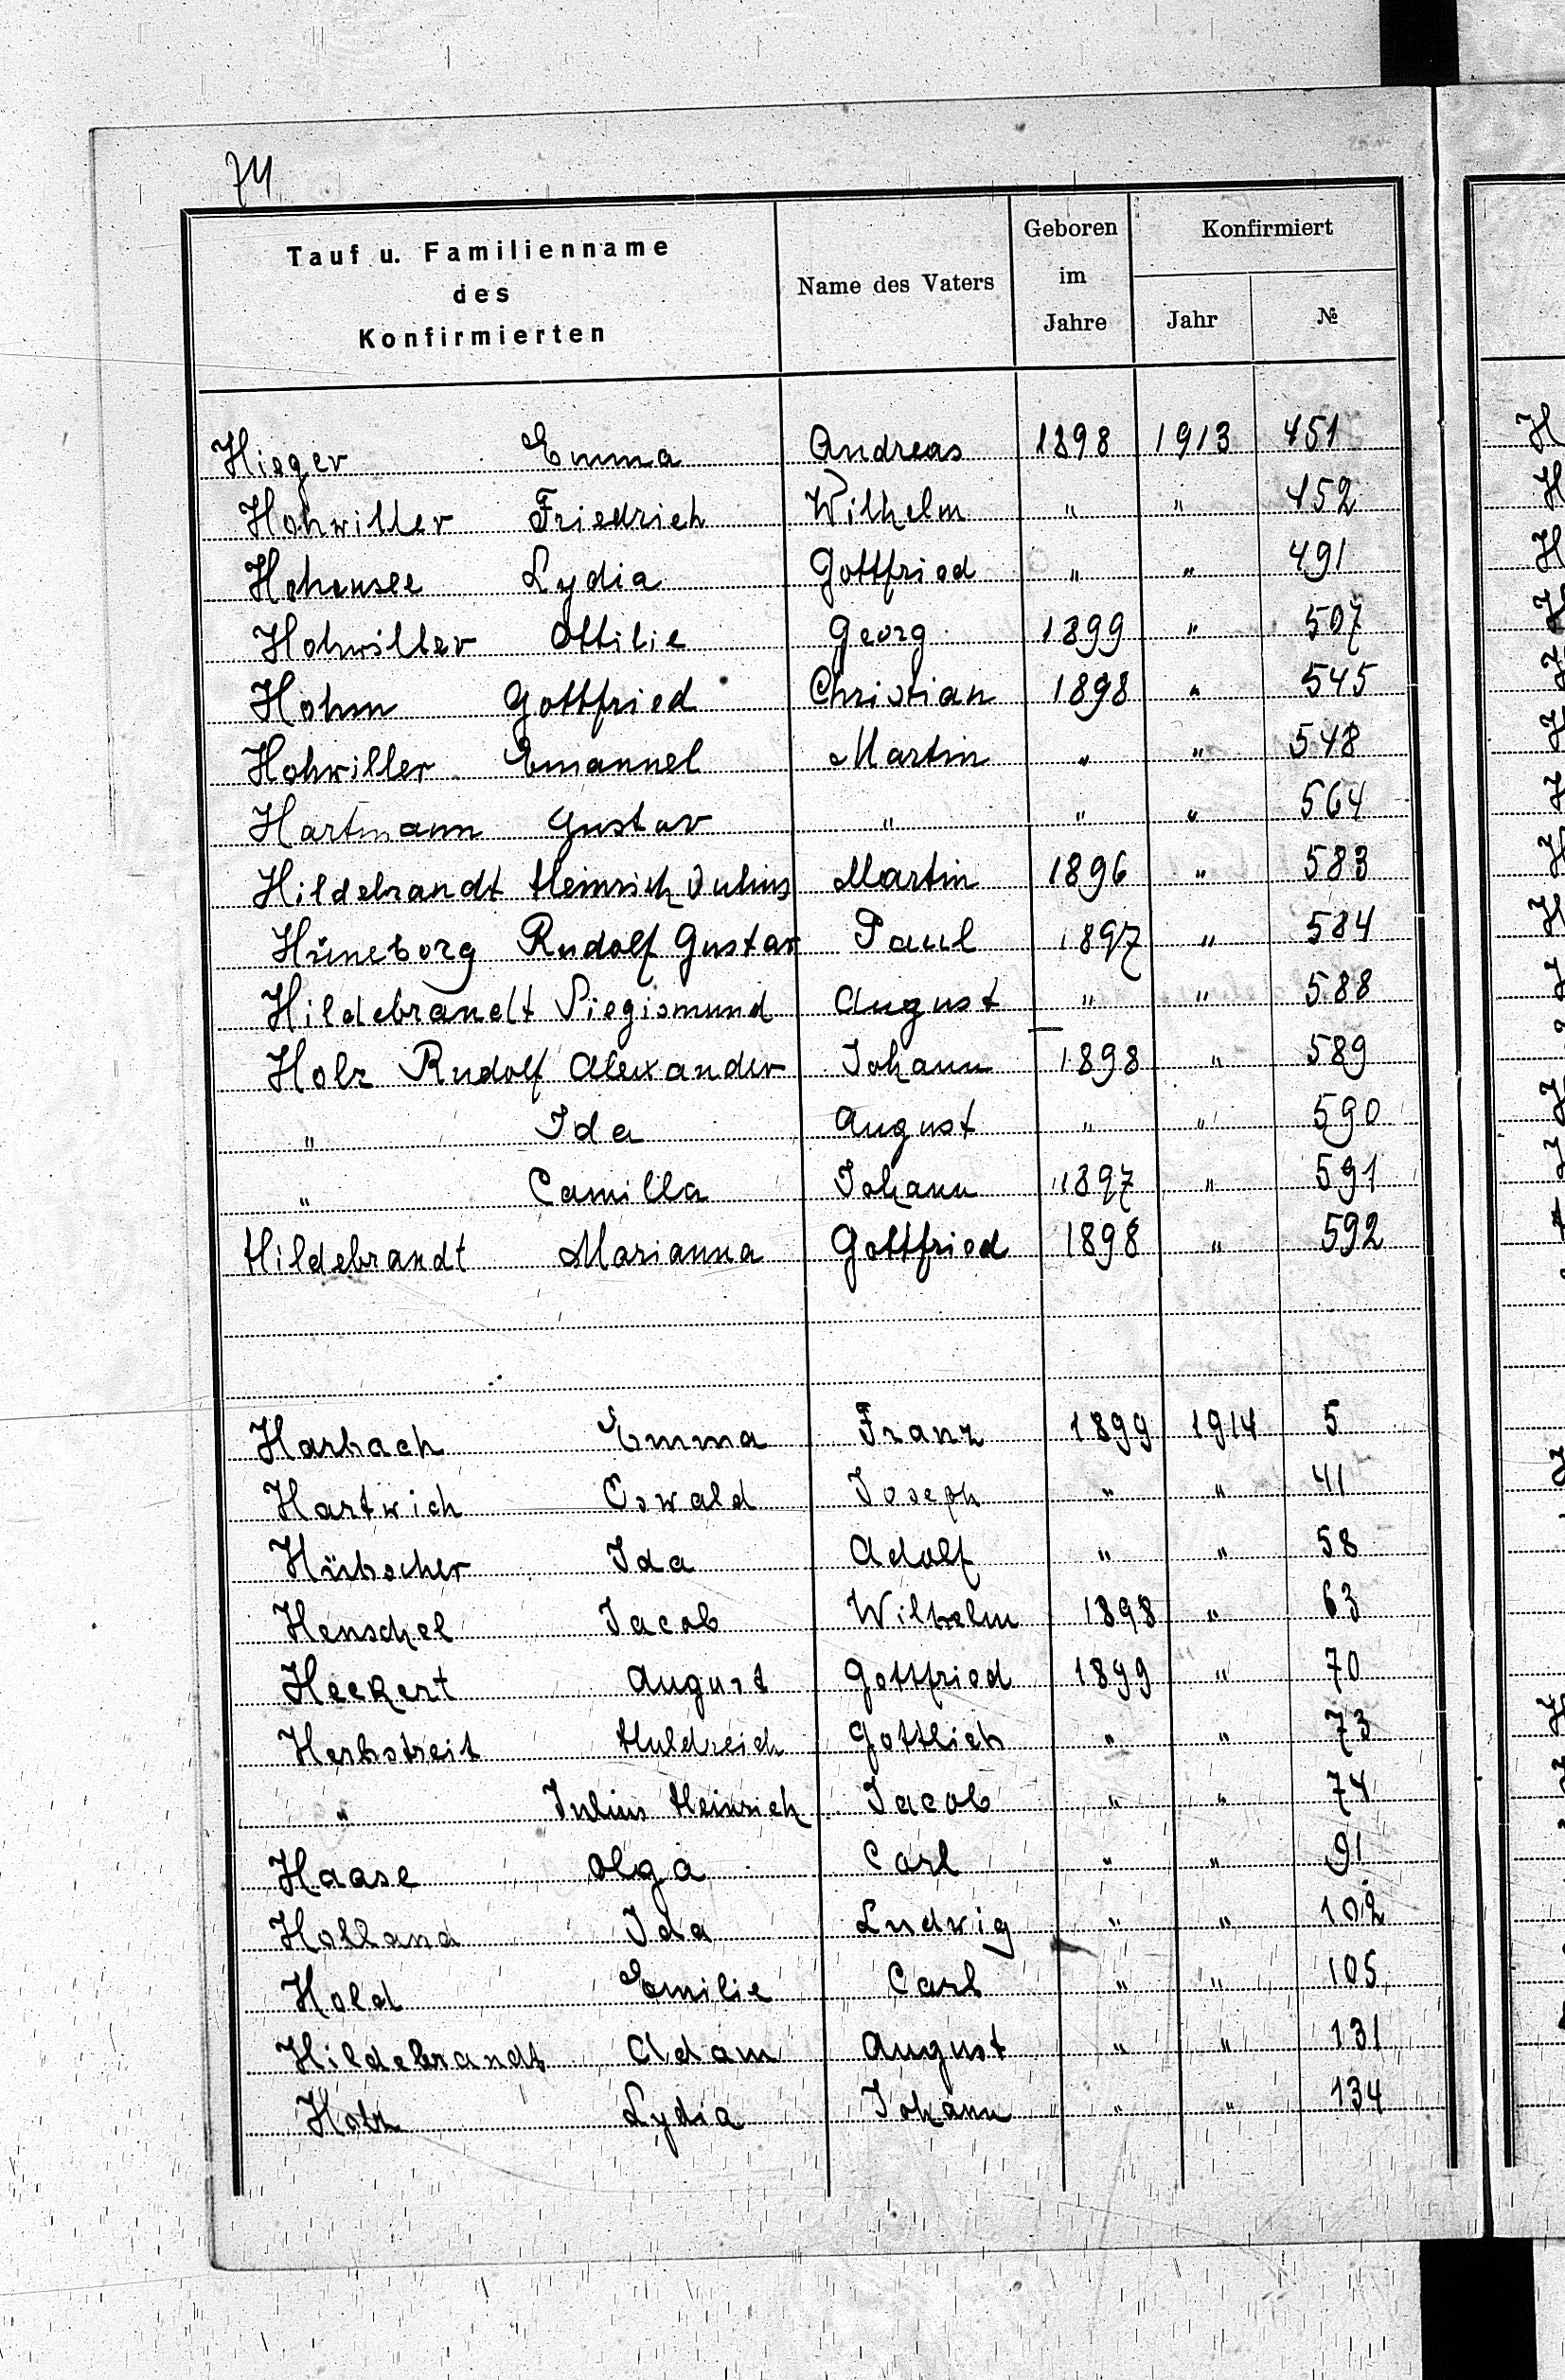 74
Tauf u. Familienname
des
Konfirmierten
Name des Vaters
Geboren
im
Jahre
Konfirmiert
Jahr
№
Hieger Emma Andreas 1898 1913 451
Hohwiller Friedrich Wilhelm " " 452
Hohensee Lydia Gottfried " " 491
Hohwiller Ottilie Georg 1899 " 507
Hohm Gottfried Christian 1898 " 545
Hohwiller Emanuel Martin " " 548
Hartmann Gustav " " " 564
Hildebrandt Heinrich Julius Martin 1896 " 583
Hüneborg Rudolf Gustav Paul 1897 " 584
Hildebrandt Siegismund August " " 588
Holz Rudolf Alexander Johann 1898 " 589
" Ida August " " 590
" Camilla Johann 1897 " 591
Hildebrandt Marianna Gottfried 1898 " 592
Harbach Emma Franz 1899 1914 5
Hartwich Oswald Joseph " " 41
Hübscher Ida Adolf " " 58
Henschel Jacob Wilhelm 1898 " 63
Heckert August Gottfried 1899 " 70
Herbstreit Huldreich Gottlieb " " 73
" Julius Heinrich Jacob " " 74
Haase Olga Carl " " 91
Holland Ida Ludwig " " 102
Hold Emilie Carl " " 105
Hildebrandt Adam August " " 131
Holz Lydia Johann " " 134